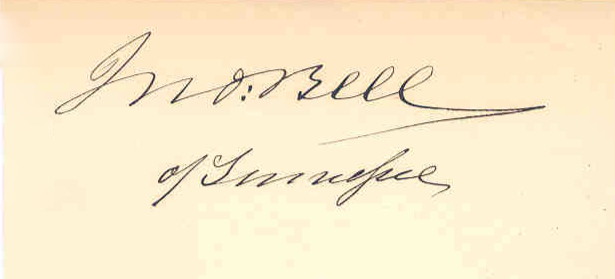 Jno: Bell
of Tennessee